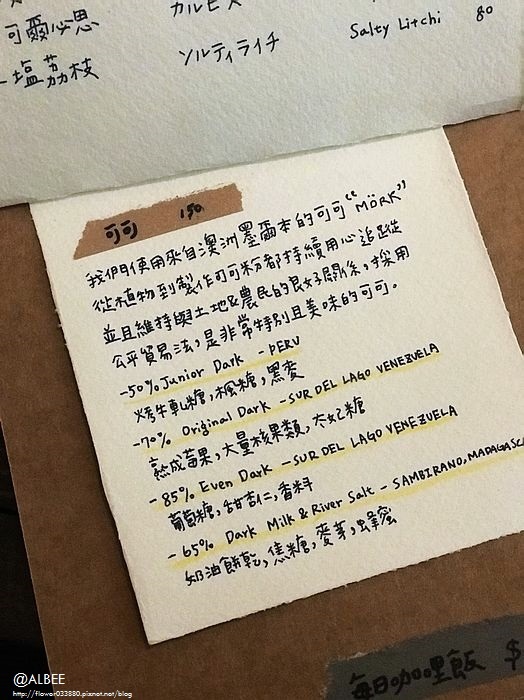 可爾必思
カルピス
塩荔枝
ソルティライチ
Salty Litchi 80
可可 150
我們使用來自澳洲墨爾本的可可"MÖRK"
從植物到製作可可粉都持續用心追蹤
並且維持與土地&農民的良好關係,採用
公平貿易法,是非常特別且美味的可可。
-50% Junior Dark - PERU
烤牛軋糖,楓糖,黑麥
-70% Original Dark - SUR DEL LAGO VENEZUELA
熟成莓果,大量核果類,太妃糖
-85% Even Dark - SUR DEL LAGO VENEZUELA
葡萄糖,甜杏仁,香料
-65% Dark Milk & River Salt - SAMBIRANO, MADAGASCA
奶油餅乾,焦糖,麥芽,蜂蜜
每日咖哩飯 $
@ALBEE
http://flower033880.pixnet.net/blog